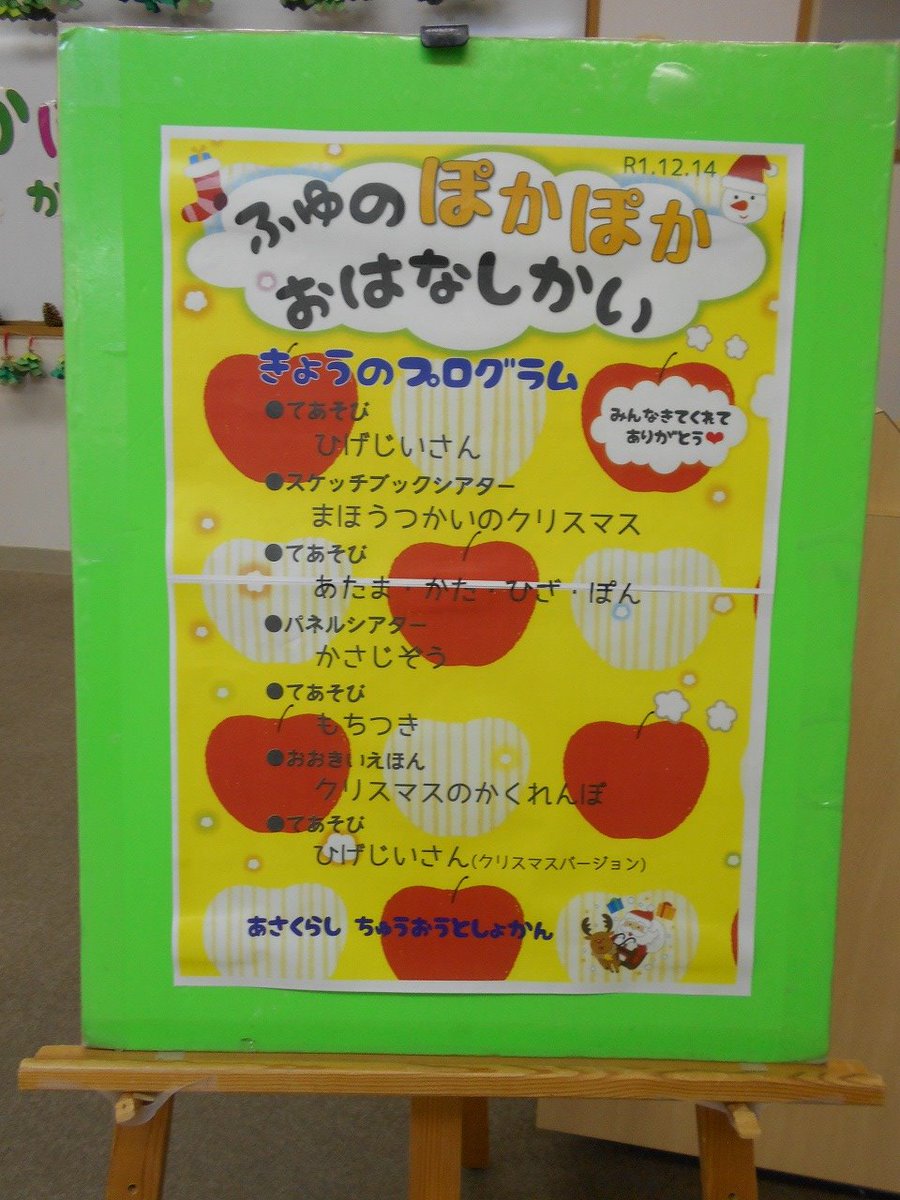 R1.12.14
ふゆのぽかぽか
おはなしかい
きょうのプログラム
みんなきてくれて
ありがとう❤
●てあそび
ひげじいさん
●スケッチブックシアター
まほうつかいのクリスマス
●てあそび
あたま・かた・ひざ・ぽん
●パネルシアター
かさじぞう
●てあそび
もちつき
●おおきいえほん
クリスマスのかくれんぼ
●てあそび
ひげじいさん(クリスマスバージョン)
あさくらし ちゅうおうとしょかん